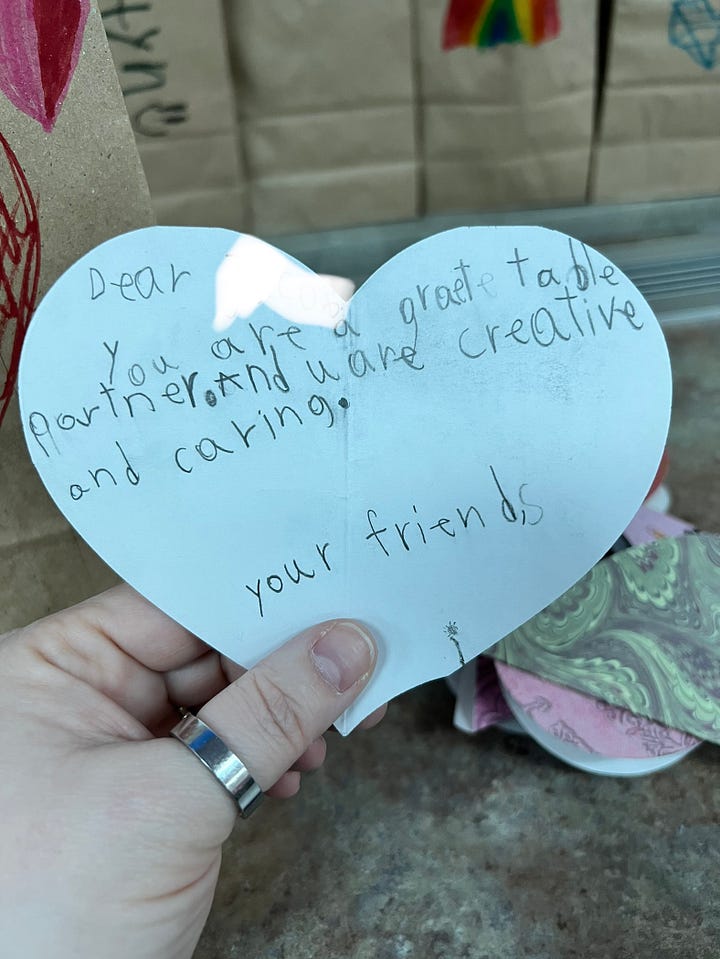 Dear
you are a graet table
partner. And u are creative
and caring.
your friend,s